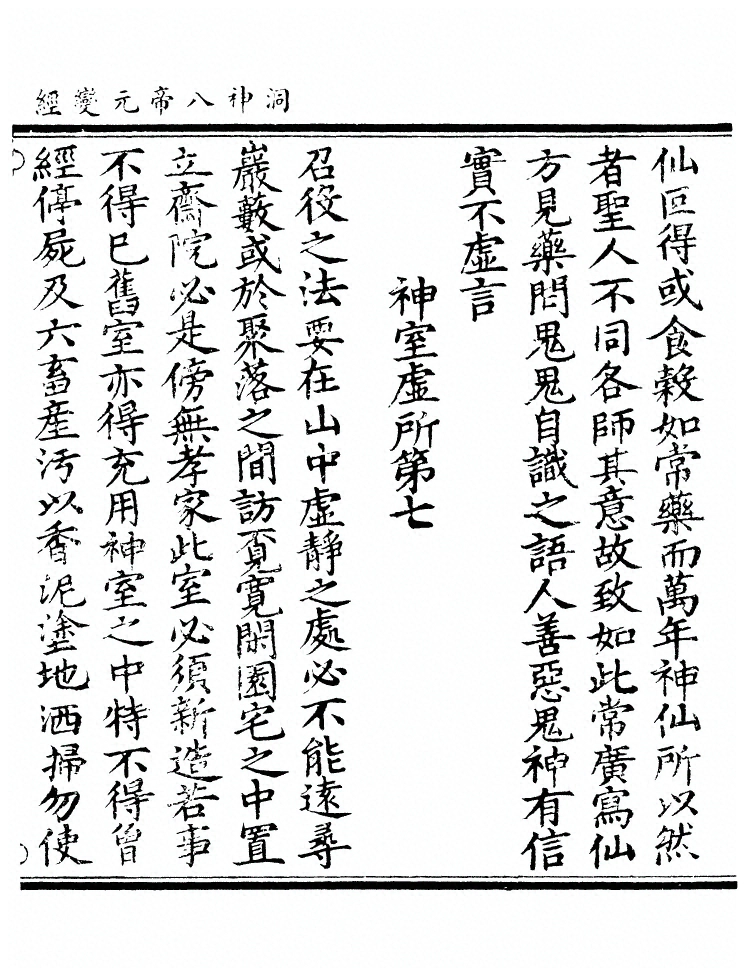 洞神八帝元變經
仙叵得或食穀如常藥而萬年神仙所以然
者聖人不同各師其意故致如此常廣寫仙
方見藥問鬼鬼自識之語人善惡鬼神有信
實不虛言
神室虛所第七
召役之法要在山中虛靜之處必不能遠尋
巖藪或於聚落之間訪覔寛閑園宅之中置
立齋院必是傍無孝家此室必須新造若事
不得已舊室亦得充用神室之中特不得曾
經停屍及六畜産汚以香泥塗地洒掃勿使